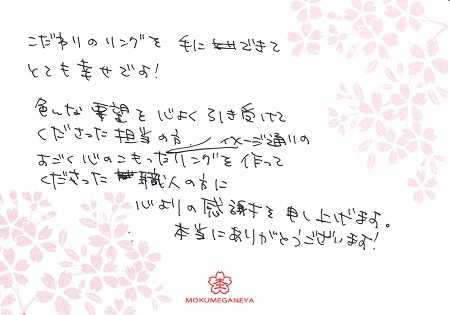 こだわりのリングを 手にできて
とても幸せですよ!
色んな要望を心よく引き受けて
くださった担当の方、イメージ通りの
すごく心のこもったリングを作って
くださった職人の方に
心よりの感謝を申し上げます。
本当にありがとうございます!
MOKUMEGANEYA